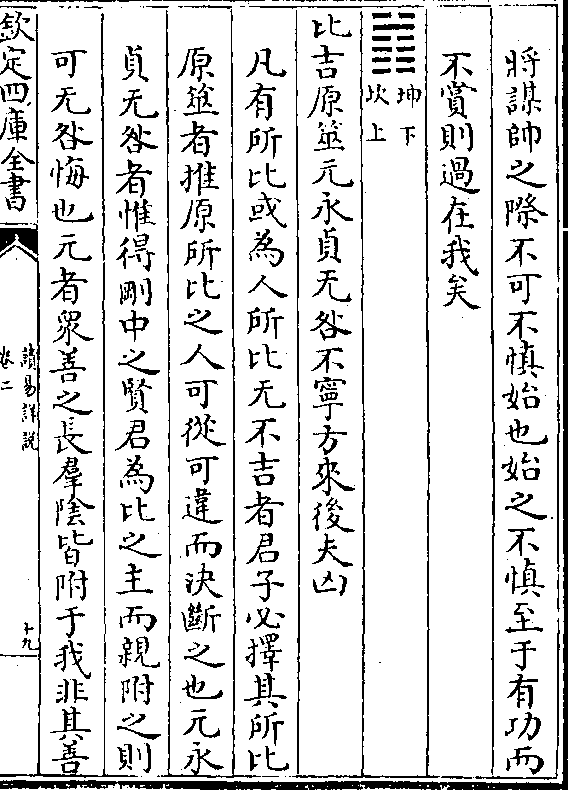 將謀帥之際不可不慎始也始之不慎至于有功而
不賞則過在我矣
䷇
坤下
坎上
比吉原筮元永貞无咎不寧方來後夫凶
凡有所比或為人所比无不吉者君子必擇其所比
原筮者推原所比之人可從可違而決斷之也元永
貞无咎者惟得剛中之賢君為比之主而親附之則
可无咎悔也元者衆善之長羣陰皆附于我非其善
欽定四庫全書
讀易詳說
卷二
十九